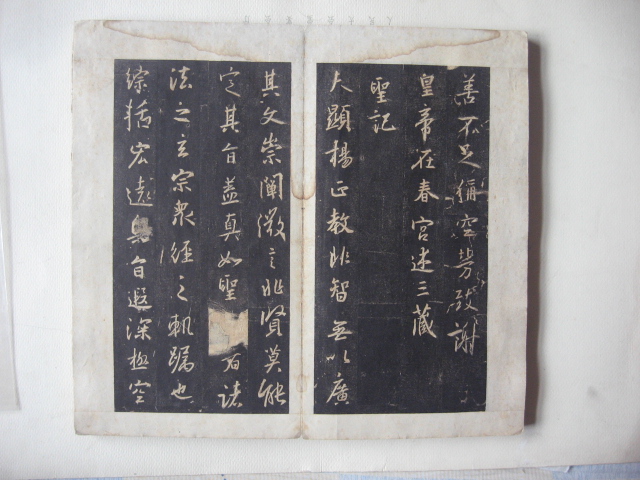 善不足稱空勞致謝
皇帝在春宮述三藏
聖記
夫顯揚正教非智無以廣
其文崇闡微言非賢莫能
定其旨蓋真如聖者諸
法之玄宗衆經之軌躅也
綜括宏遠奧旨遐深極空